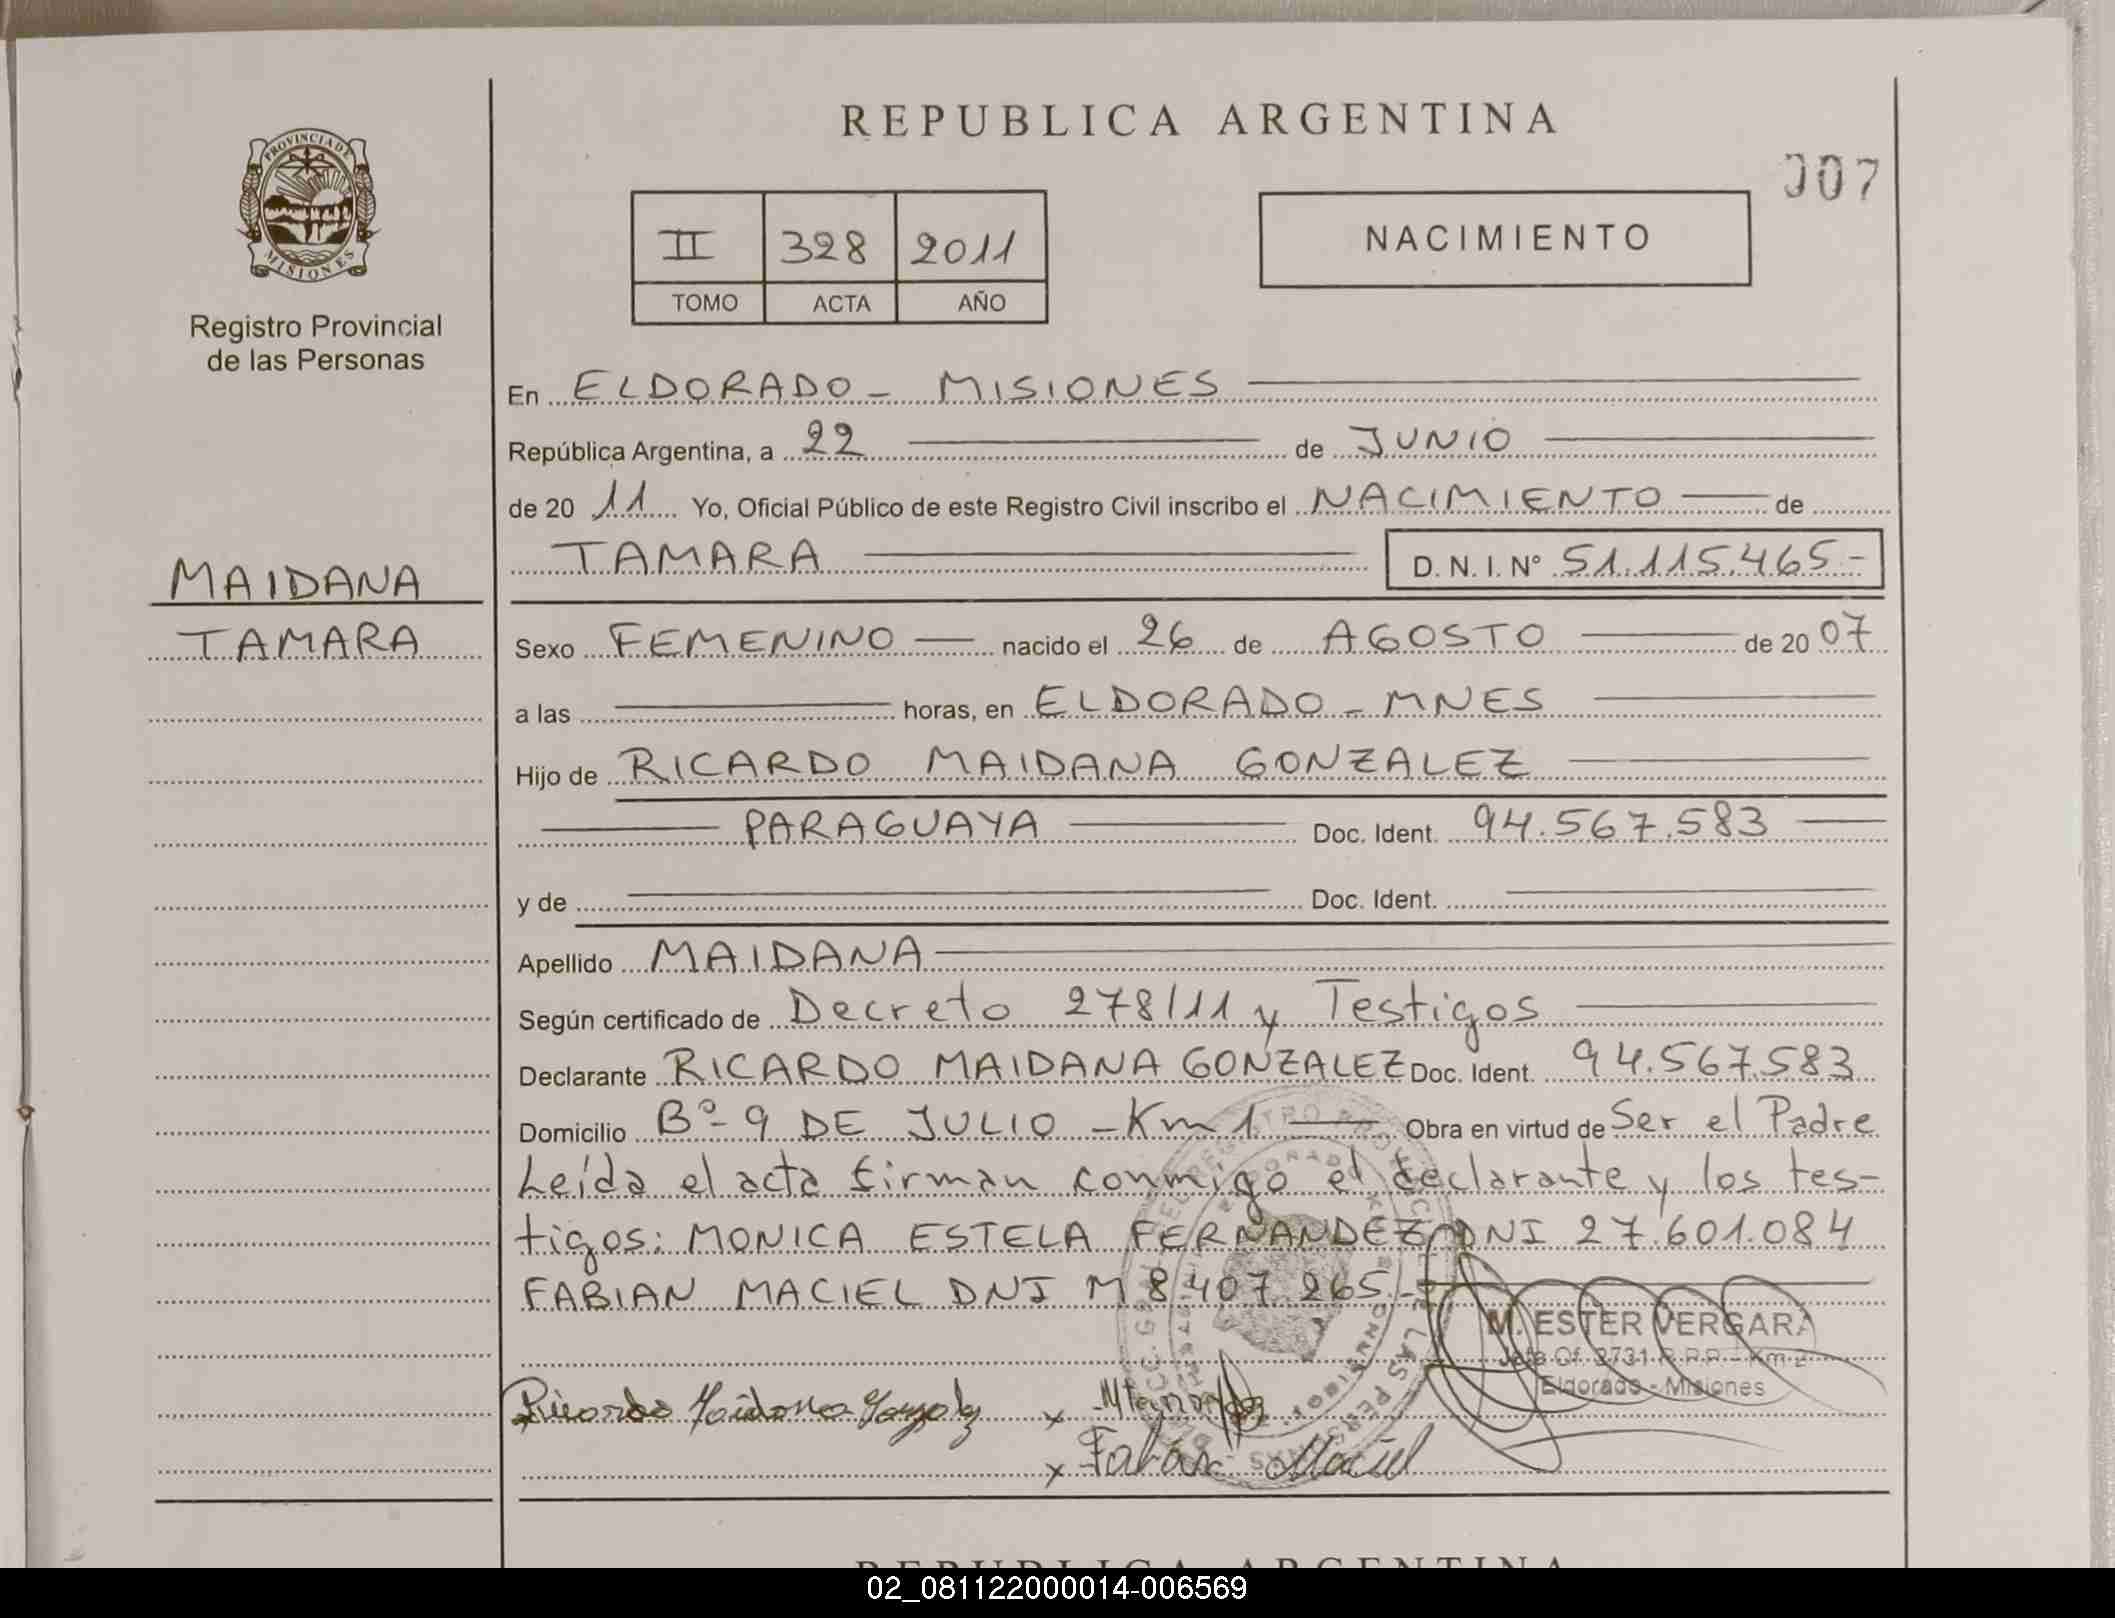 REPUBLICA ARGENTINA
007
PROVINCIA DE
MISIONES
II 328 2011
TOMO ACTA AÑO
NACIMIENTO
Registro Provincial
de las Personas
En ELDORADO - MISIONES
República Argentina, a 22 de JUNIO
de 20 11 Yo, Oficial Público de este Registro Civil inscribo el NACIMIENTO de
TAMARA D. N. I. Nº 51.115.465-
MAIDANA
TAMARA
Sexo FEMENINO nacido el 26 de AGOSTO de 20 07
a las horas, en ELDORADO - MNES
Hijo de RICARDO MAIDANA GONZALEZ
PARAGUAYA Doc. Ident. 94.567.583
y de Doc. Ident.
Apellido MAIDANA
Según certificado de Decreto 278/11 y Testigos
Declarante RICARDO MAIDANA GONZALEZ Doc. Ident. 94.567.583
Domicilio Bº- 9 DE JULIO - Km 1 Obra en virtud de Ser el Padre
Leída el acta firman conmigo el declarante y los tes-
tigos: MONICA ESTELA FERNANDEZ DNI 27.601.084
FABIAN MACIEL DNI M 8.407.265.-
M. ESTER VERGARA
Jefe Of. 3731 R.P.P. - Km 2
Eldorado - Misiones
Ricardo Maidana Gonzalez x
x Fabián Maciel
REPUBLICA ARGENTINA
02_081122000014-006569